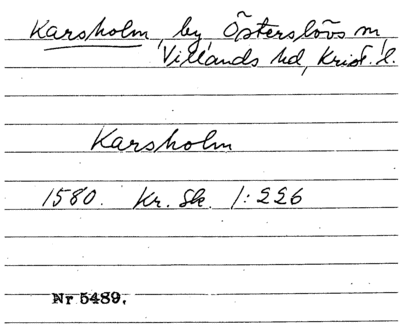 Karsholm, by, Östерslövs sn,
Villands hd, Krist. l.
Karsholm
1580. Kr. Sk. 1:226
Nr 5489.